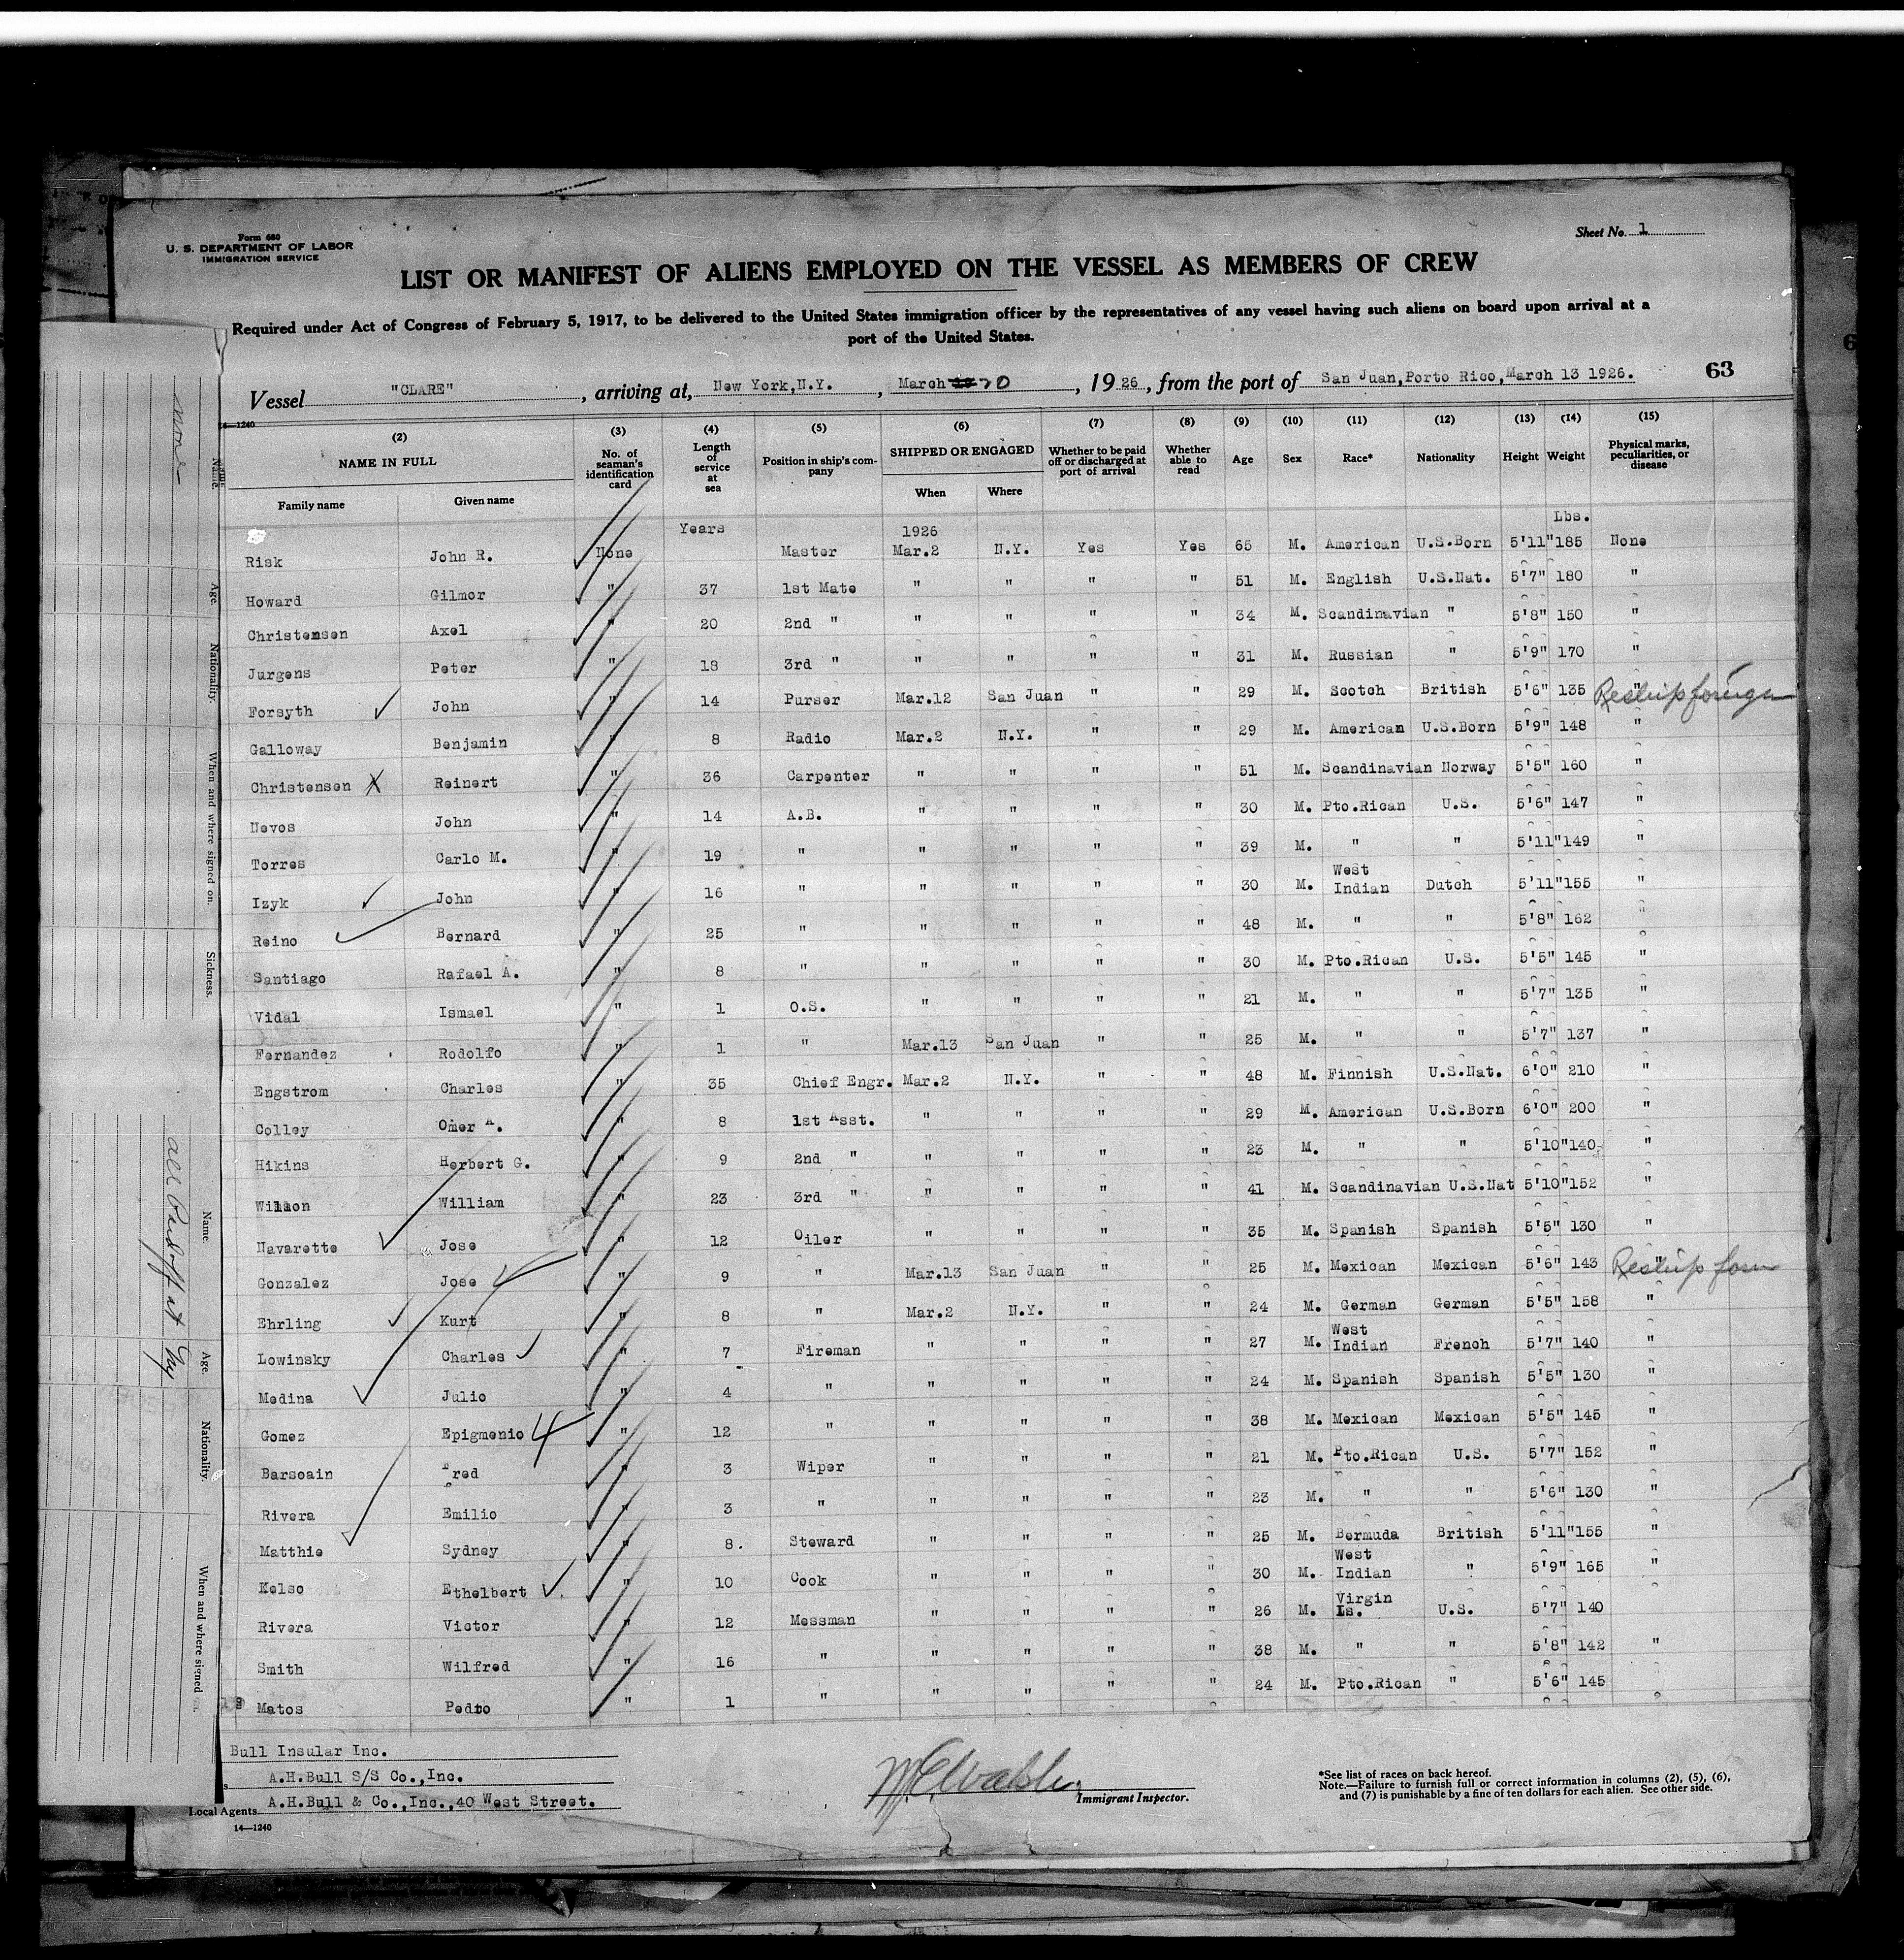 Form 680
U. S. DEPARTMENT OF LABOR
IMMIGRATION SERVICE
Sheet No. 1
LIST OR MANIFEST OF ALIENS EMPLOYED ON THE VESSEL AS MEMBERS OF CREW
Required under Act of Congress of February 5, 1917, to be delivered to the United States immigration officer by the representatives of any vessel having such aliens on board upon arrival at a
port of the United States.
Vessel "CLARE", arriving at, New York, N.Y., March 20, 1926, from the port of San Juan, Porto Rico, March 13 1926. 63
14—1240
(2) (3) (4) (5) (6) (7) (8) (9) (10) (11) (12) (13) (14) (15)
NAME IN FULL No. of seaman's identification card Length of service at sea Position in ship's company SHIPPED OR ENGAGED Whether to be paid off or discharged at port of arrival Whether able to read Age Sex Race* Nationality Height Weight Physical marks, peculiarities, or disease
Family name Given name When Where
Years 1926 Lbs.
Risk John R. None Master Mar.2 N.Y. Yes Yes 65 M. American U.S.Born 5'11" 185 None
Howard Gilmor " 37 1st Mate " " " " 51 M. English U.S.Nat. 5'7" 180 "
Christensen Axel " 20 2nd " " " " " 34 M. Scandinavian " 5'8" 150 "
Jurgens Peter " 18 3rd " " " " " 31 M. Russian " 5'9" 170 "
Forsyth John " 14 Purser Mar.12 San Juan " " 29 M. Scotch British 5'6" 135 " Reship foreign
Galloway Benjamin " 8 Radio Mar.2 N.Y. " " 29 M. American U.S.Born 5'9" 148 "
Christensen X Reinert " 36 Carpenter " " " " 51 M. Scandinavian Norway 5'5" 160 "
Nevos John " 14 A.B. " " " " 30 M. Pto.Rican U.S. 5'6" 147 "
Torres Carlo M. " 19 " " " " " 39 M. " " 5'11" 149 "
Izyk John " 16 " " " " " 30 M. West Indian Dutch 5'11" 155 "
Reino Bernard " 25 " " " " " 48 M. " " 5'8" 162 "
Santiago Rafael A. " 8 " " " " " 30 M. Pto.Rican U.S. 5'5" 145 "
Vidal Ismael " 1 O.S. " " " " 21 M. " " 5'7" 135 "
Fernandez Rodolfo " 1 " Mar.13 San Juan " " 25 M. " " 5'7" 137 "
Engstrom Charles " 35 Chief Engr. Mar.2 N.Y. " " 48 M. Finnish U.S.Nat. 6'0" 210 "
Colley Omer A. " 8 1st Asst. " " " " 29 M. American U.S.Born 6'0" 200 "
Hikins Herbert G. " 9 2nd " " " " " 23 M. " " 5'10" 140 "
William " 23 3rd " " " " " 41 M. Scandinavian U.S.Nat 5'10" 152 "
Navarette Jose " 12 Oiler " " " " 35 M. Spanish Spanish 5'5" 130 "
Gonzalez Jose " 9 " Mar.13 San Juan " " 25 M. Mexican Mexican 5'6" 143 " Reship
Ehrling Kurt " 8 " Mar.2 N.Y. " " 24 M. German German 5'5" 158 "
Lowinsky Charles " 7 Fireman " " " " 27 M. West Indian French 5'7" 140 "
Medina Julio " 4 " " " " " 24 M. Spanish Spanish 5'5" 130 "
Gomez Epigmenio " 12 " " " " " 38 M. Mexican Mexican 5'5" 145 "
Barsoain Fred " 3 Wiper " " " " 21 M. Pto.Rican U.S. 5'7" 152 "
Rivera Emilio " 3 " " " " " 23 M. " " 5'6" 130 "
Matthie Sydney " 8. Steward " " " " 25 M. Bermuda British 5'11" 155 "
Kelso Ethelbert " 10 Cook " " " " 30 M. West Indian " 5'9" 165 "
Rivera Victor " 12 Messman " " " " 26 M. Virgin Is. U.S. 5'7" 140
Smith Wilfred " 16 " " " " " 38 M. " " 5'8" 142 "
Matos Pedro " 1 " " " " " 24 M. Pto.Rican " 5'6" 145 "
Bull Insular Inc.
A.H.Bull S/S Co.,Inc.
Local Agents A.H.Bull & Co.,Inc.,40 West Street.
14—1240
Immigrant Inspector.
*See list of races on back hereof.
Note.—Failure to furnish full or correct information in columns (2), (5), (6),
and (7) is punishable by a fine of ten dollars for each alien. See other side.
Name.
Age.
Nationality.
When and where signed on.
Sickness.
none
Name.
Age.
Nationality.
When and where signed on.
all Paid off at Ny